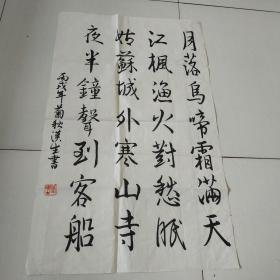 月落烏啼霜滿天
江楓漁火對愁眠
姑蘇城外寒山寺
夜半鐘聲到客船
丙戌年菊秋漢生書